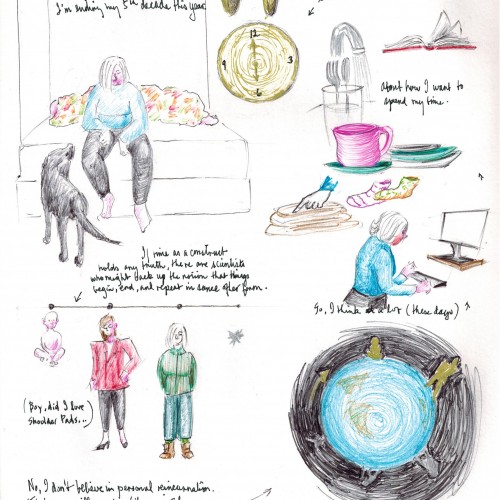 I'm ending my 5th decade this year
12
3
6
9
about how I want to
spend my time.
If time as a construct
holds any truth, there are scientists
who might back up the notion that things
begin, end, and repeat in some other form.
So, I think a lot (these days)
(Boy, did I love
Shoulder Pads...)
No, I don't believe in personal reincarnation.